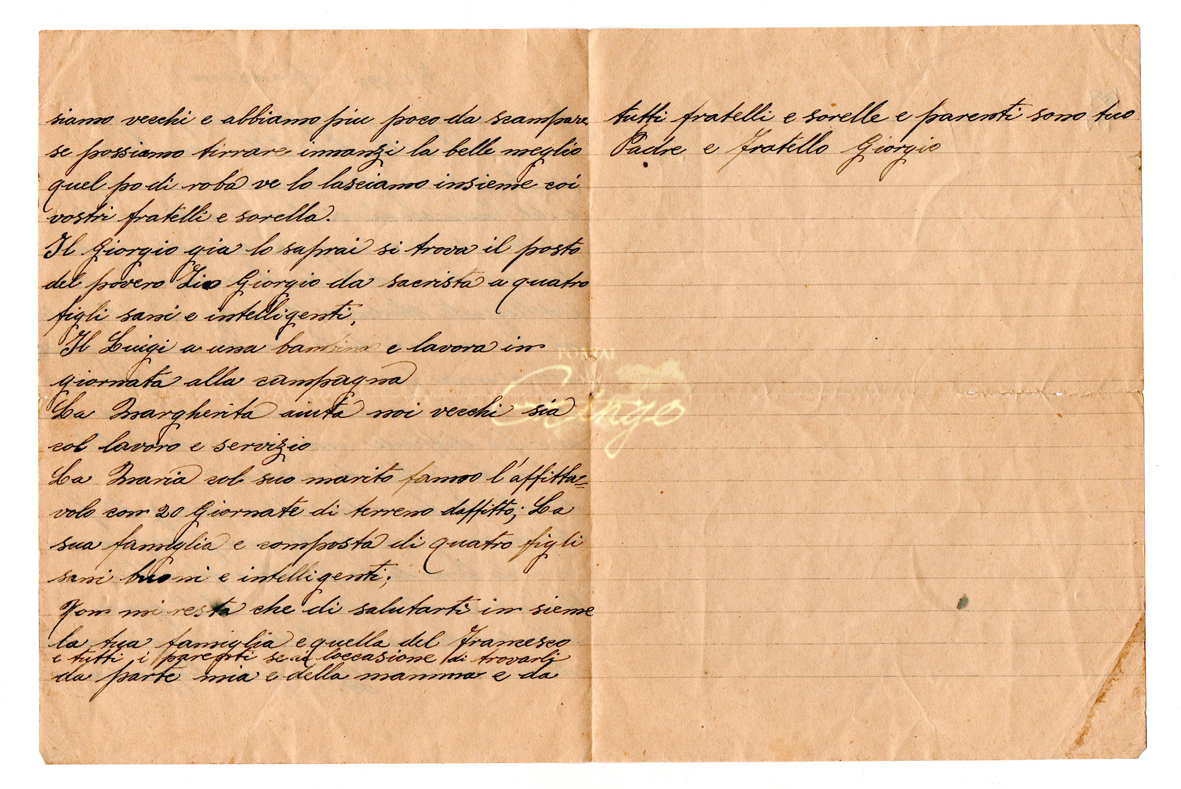 siamo vecchi e abbiamo piu poco da scampare
se possiamo tirrare innanzi la belle meglio
quel po di roba ve lo lasciamo insieme coi
vostri fratelli e sorella.
Il Giorgio gia lo saprai si trova il posto
del povero Zio Giorgio da sacrista a quatro
figli sani e intelligenti,
Il Luigi a una bambina e lavora in
giornata alla campagna
La Margherita aiuta noi vecchi sia
col lavoro e servizio
La Maria col suo marito fanno l'affitta=
volo con 20 Giornate di terreno daffitto; La
sua famiglia e composta di quatro figli
sani buoni e intelligenti;
Non mi resta che di salutarti in sieme
la tua famiglia e quella del Francesco
e tutti i parenti se ai loccasione di trovarli
da parte mia e della mamma e da
tutti fratelli e sorelle e parenti sono tuo
Padre e Fratello Giorgio
PORTAL
Gringo